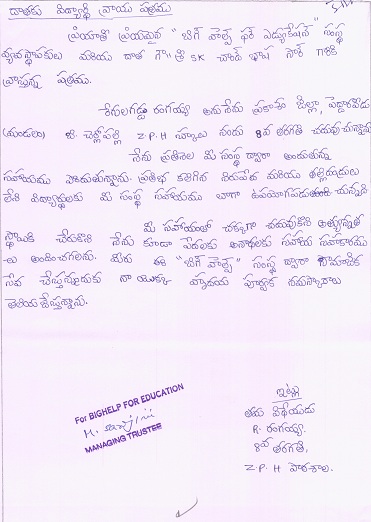 దాతకు విద్యార్థి వ్రాయు పత్రము
ప్రియాతి ప్రియమైన "బిగ్ హెల్ప్ ఫర్ ఎడ్యుకేషన్" సంస్థ
వ్యవస్థాపకులు మరియు దాత గౌ" శ్రీ SK చాంద్ భాష సార్ గారికి
వ్రాస్తున్న పత్రము.
రంగయ్య అనునేను ప్రకాశం జిల్లా,
(మండలం) Z.P.H స్కూలు నందు 8వ తరగతి చదువుచున్నాను
నేను ప్రతినెల మీ సంస్థ ద్వారా అందుతున్న
సహాయము పొందుతున్నాను. ప్రతిభ కలిగిన నిరుపేద మరియు తల్లిదండ్రులు
లేని విద్యార్థులకు మీ సంస్థ సహాయము బాగా
మీ సహాయంతో చక్కగా చదువుకొని అత్యున్నత
స్థాయికి చేరుకొని నేను కూడా పేదలకు అనాథలకు సహాయ సహకారము
లు అందించగలను. మీరు ఈ "బిగ్ హెల్ప్" సంస్థ ద్వారా సామాజిక
సేవ చేస్తున్నందుకు నా యొక్క హృదయ పూర్వక నమస్కారాలు
తెలియజేస్తున్నాను.
For BIGHELP FOR EDUCATION
MANAGING TRUSTEE
ఇట్లు
తమ విధేయుడు
R. రంగయ్య.
8వ తరగతి,
Z.P.H పాఠశాల.